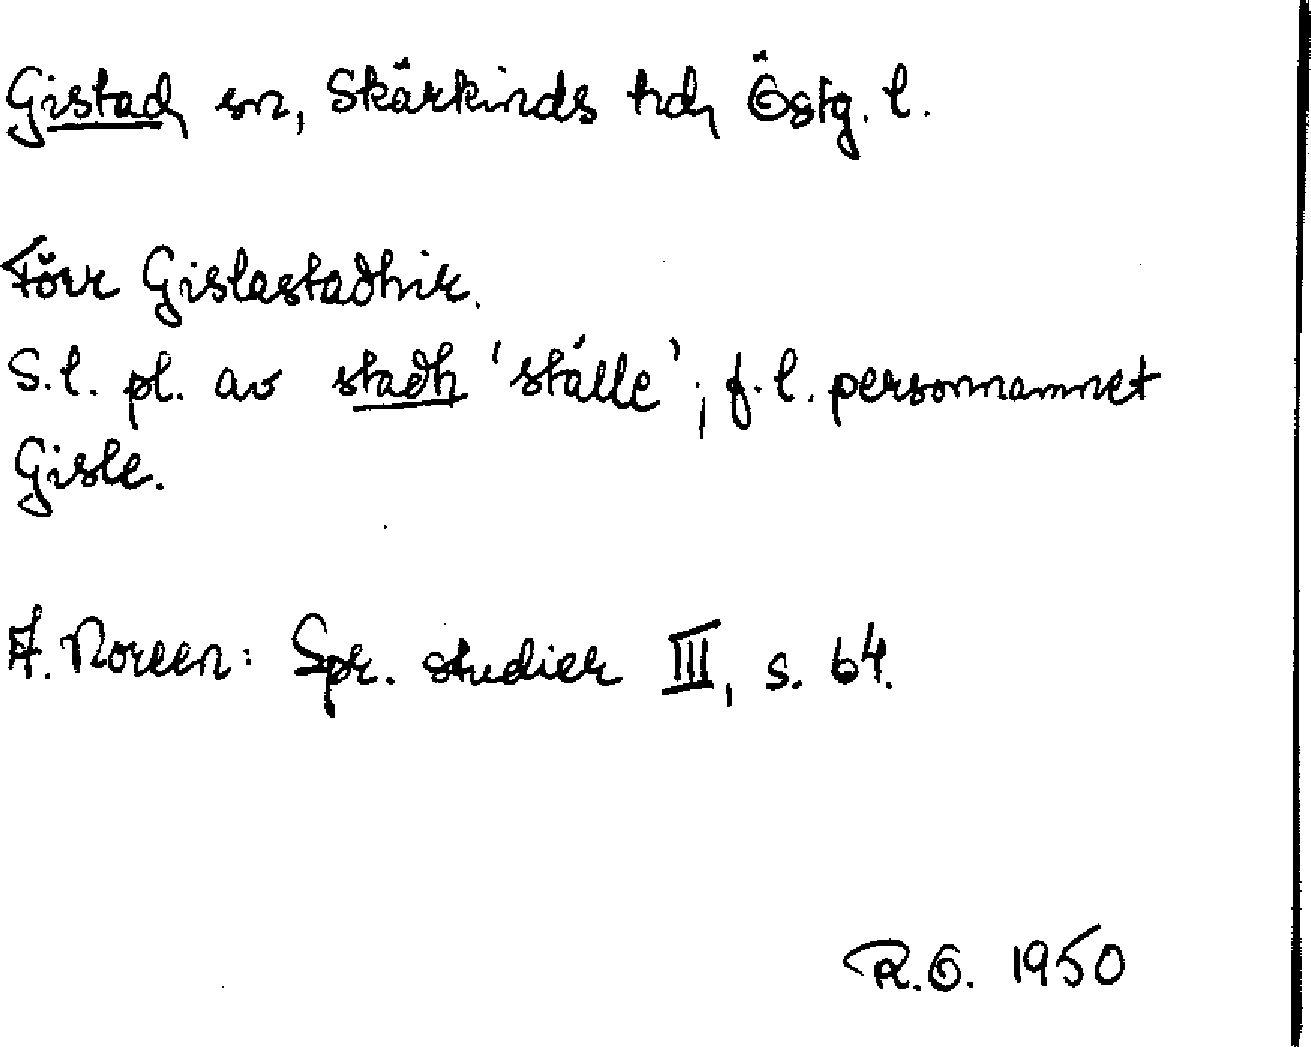 Gistad sn, Skärkinds hd, Östg. l.
Förr Gislastadhir.
S.l. pl. av stadh 'ställe'; f.l. personnamnet
Gisle.
A. Noreen: Spr. studier III, s. 64.
R.O. 1950